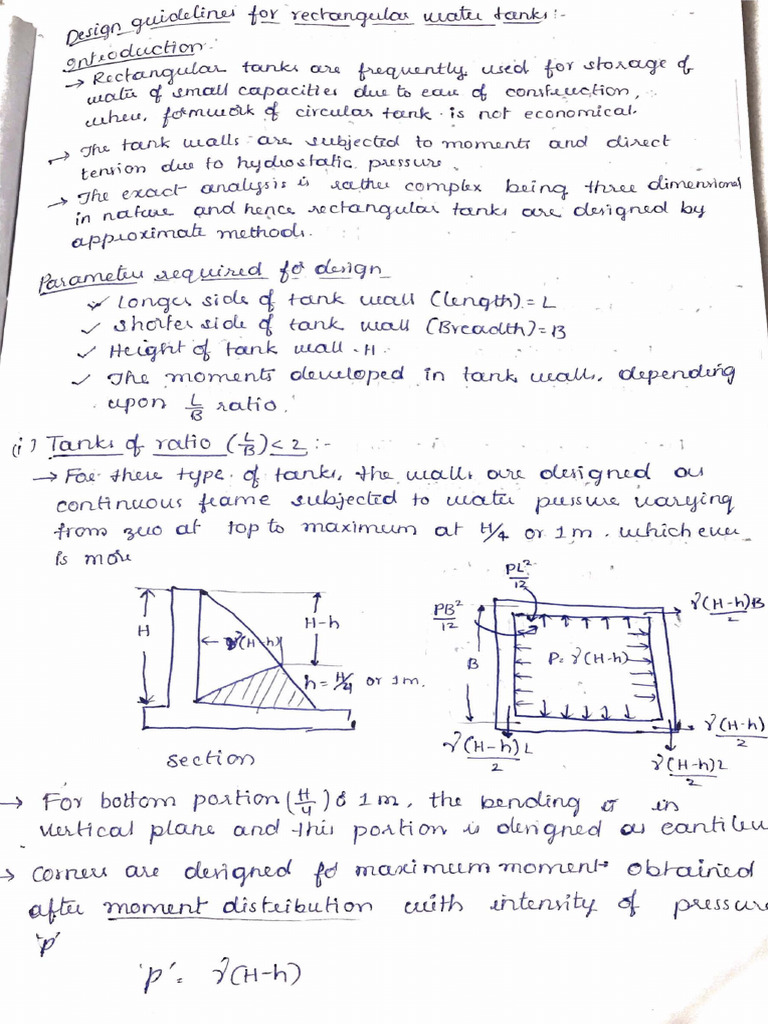 Design guidelines for rectangular water tanks:-
Introduction:
→ Rectangular tanks are frequently used for storage of
water of small capacities due to ease of construction,
when, formwork of circular tank is not economical.
→ The tank walls are subjected to moments and direct
tension due to hydrostatic pressure.
→ The exact analysis is rather complex being three dimensional
in nature and hence rectangular tanks are designed by
approximate methods.
Parameter required for design
✓ Longer side of tank wall (length) = L
✓ Shorter side of tank wall (Breadth) = B
✓ Height of tank wall - H
✓ The moments developed in tank walls, depending
upon L/B ratio.
(i) Tanks of ratio (L/B) < 2 :-
→ For these type of tanks, the walls are designed as
continuous frame subjected to water pressure varying
from zero at top to maximum at H/4 or 1m. which ever
is more
PL²/12
PB²/12
γ(H-h)B/2
H
H-h
γ(H-h)
h = H/4 or 1m.
B
P = γ(H-h)
γ(H-h)L/2
γ(H-h)/2
γ(H-h)L/2
section
→ For bottom portion (H/4) or 1m, the bending is in
vertical plane and this portion is designed as cantilev
→ Corners are designed for maximum moment obtained
after moment distribution with intensity of pressure
'p'
'p' = γ(H-h)